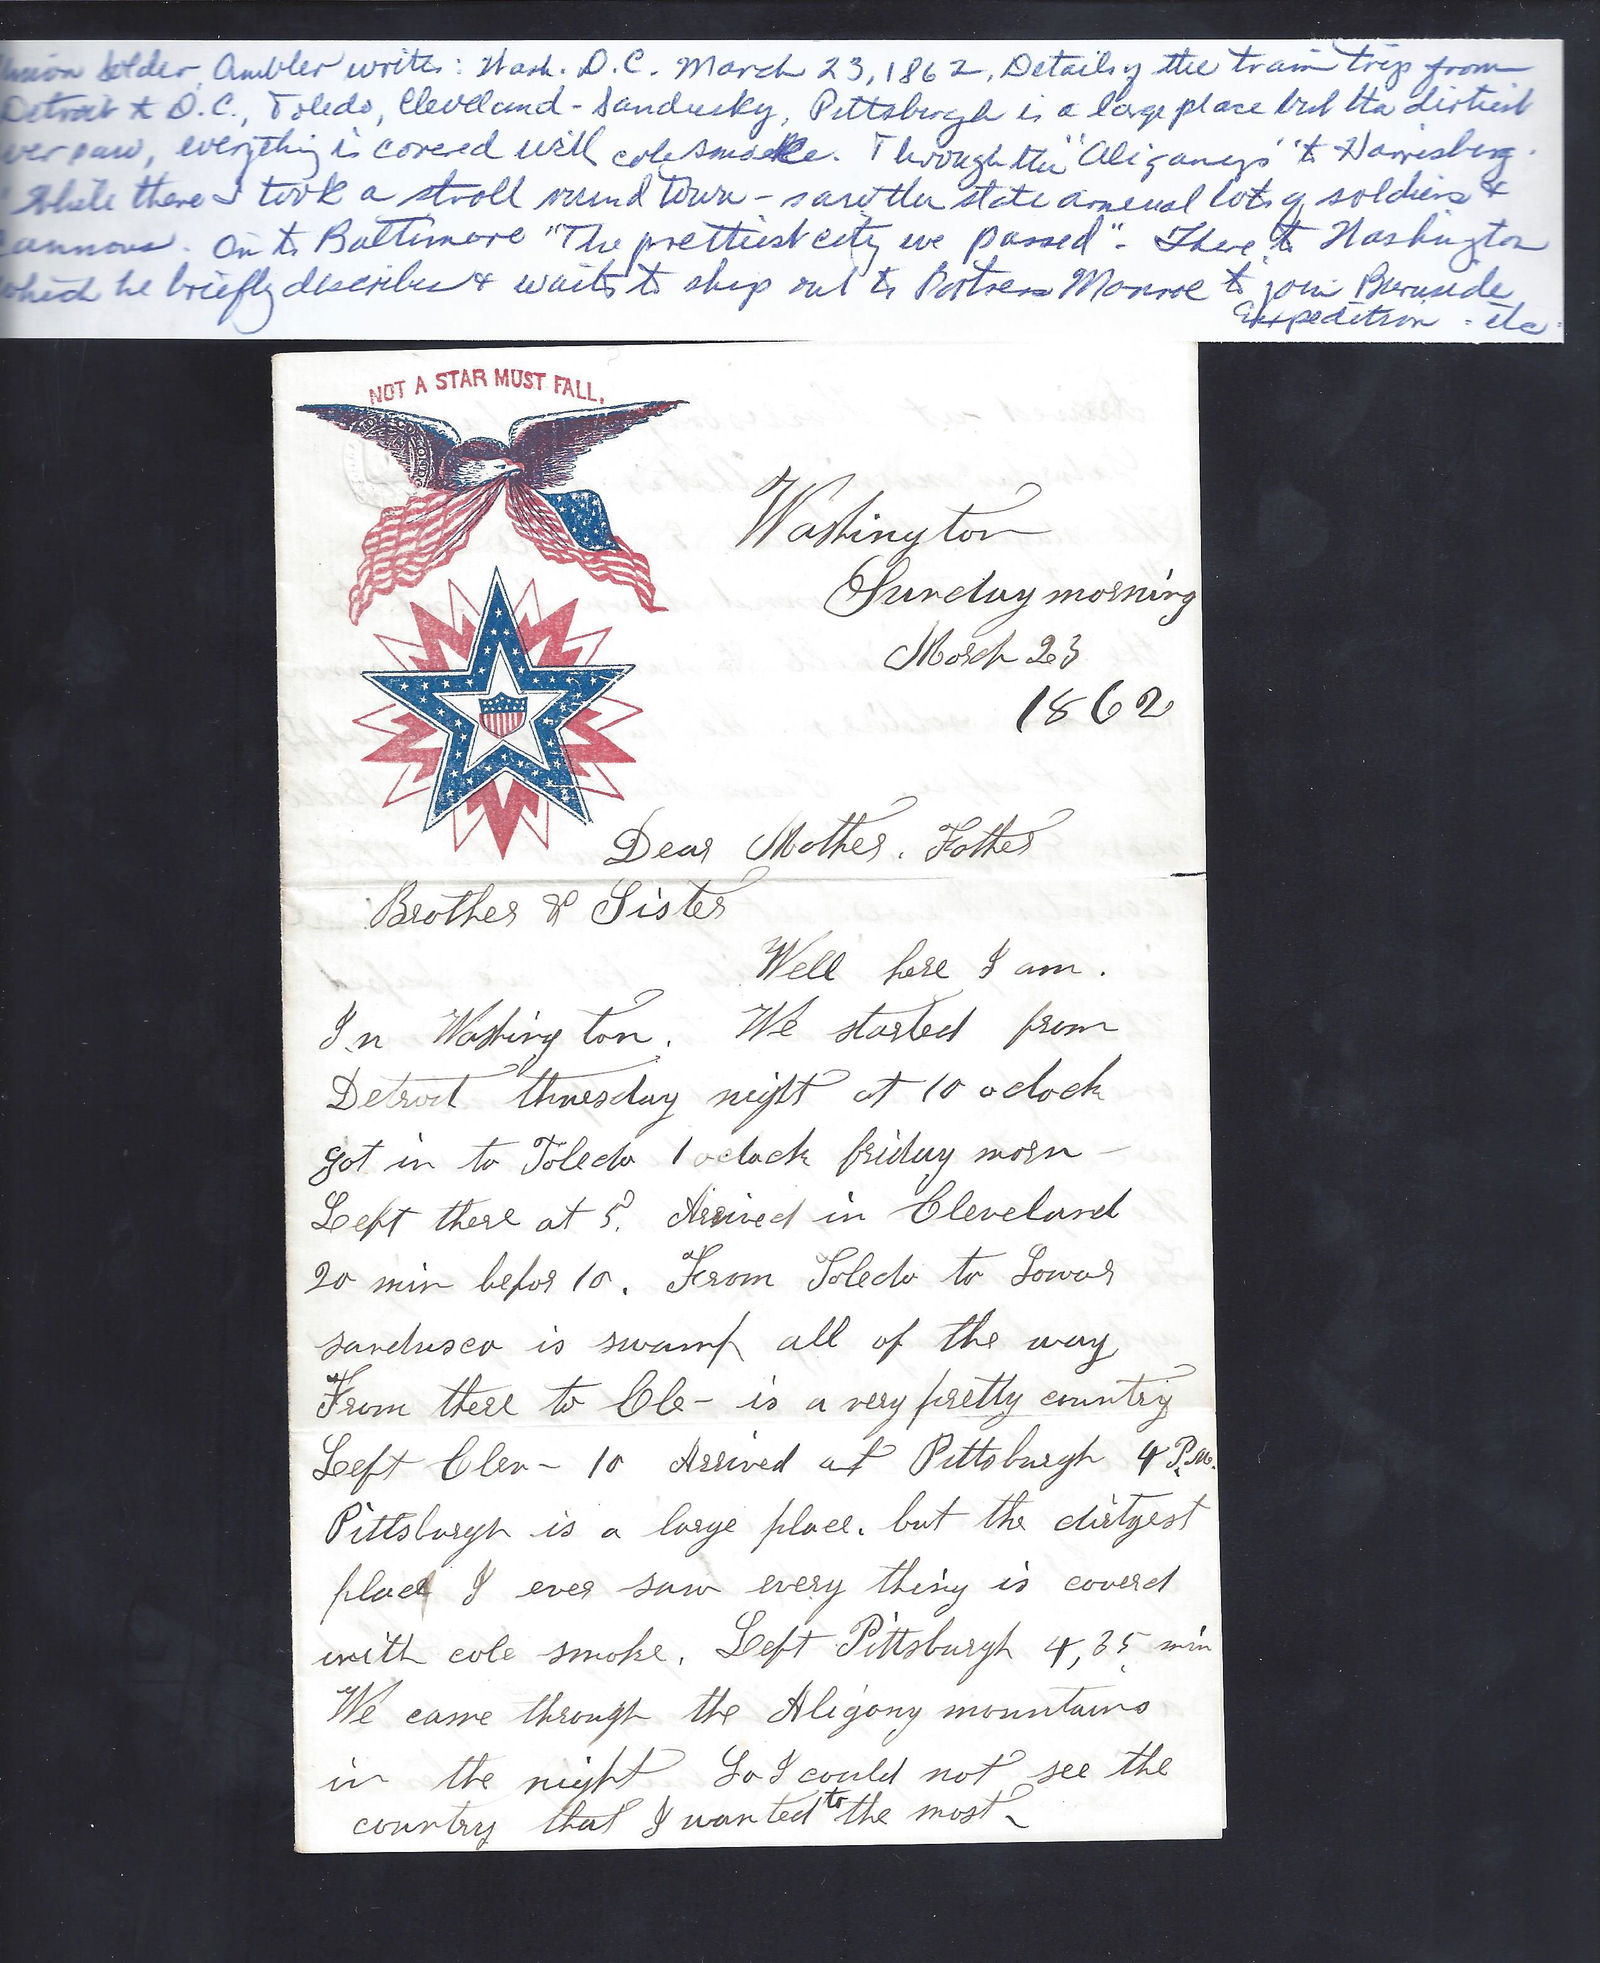 Union Solder, Ambler writes: Wash. D.C. March 23, 1862, Details of the train trip from
Detroit to D.C., Toledo, Cleveland - Sandusky, Pittsburgh is a large place but the dirtiest
ever saw, everything is covered with cole smoke. Through the "Aliganeys" to Harrisburg.
"While there I took a stroll round town - saw the state arsenal lots of soldiers &
cannons. On to Baltimore "The prettiest city we passed" - Thence to Washington
which he briefly describes & waits to ship out to Fortress Monroe to join Burnside
Expedition - etc.
NOT A STAR MUST FALL.
Washington
Sunday morning
March 23
1862
Dear Mother. Father
Brother & Sister
Well here I am.
In Washington. We started from
Detroit thursday night at 10 oclock
got in to Toledo 1 oclock friday morn -
Left there at 5. Arrived in Cleveland
20 min befor 10. From Toledo to Lower
sandusco is swamp all of the way
From there to Cle- is a very pretty country
Left Clev- 10 Arrived at Pittsburgh 4 P.M.
Pittsburgh is a large place. but the dirtyest
place I ever saw every thing is coverd
with cole smoke. Left Pittsburgh 4,35 min
We came through the Aligany mountains
in the night So I could not see the
country that I wanted to the most